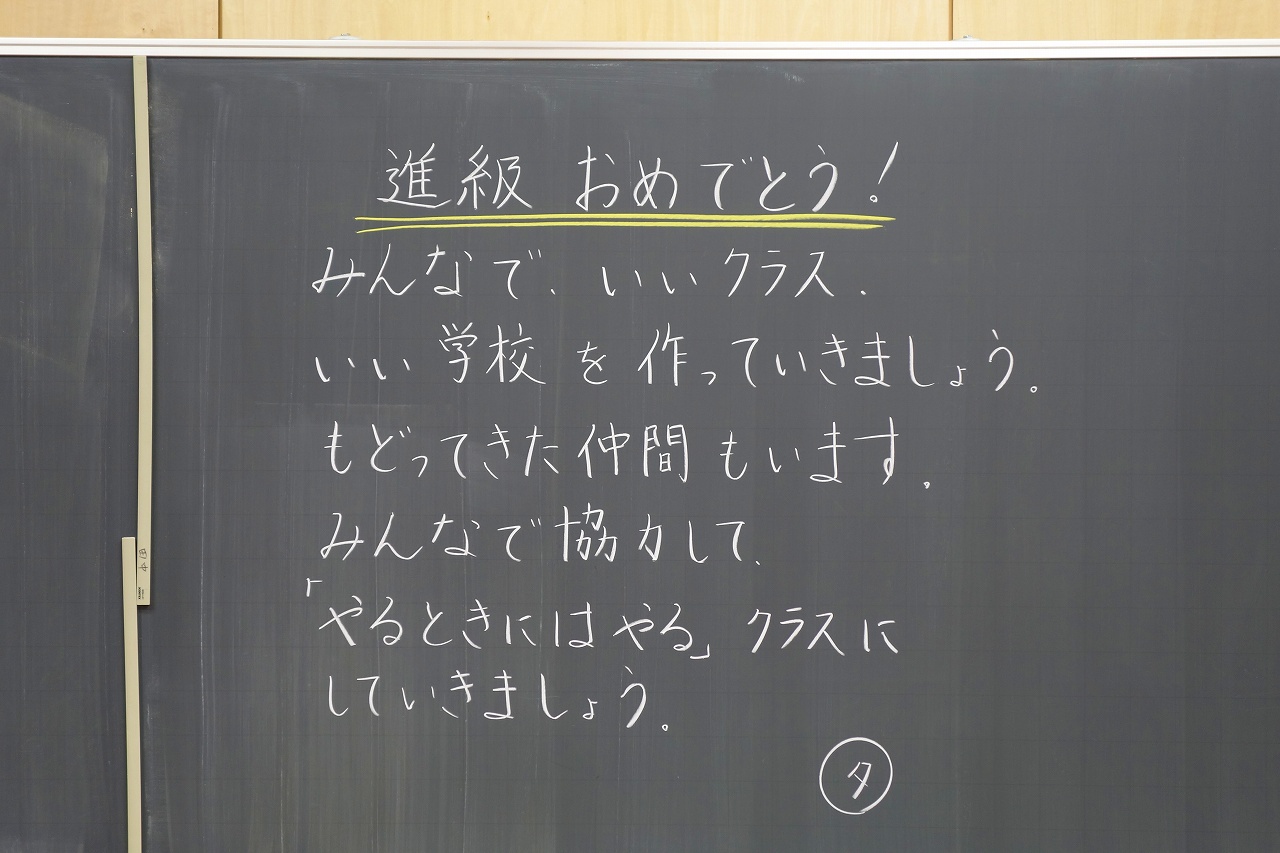 進級 おめでとう!
みんなで、いいクラス、
いい学校を作っていきましょう。
もどってきた仲間もいます。
みんなで協力して、
「やるときにはやる」クラスに
していきましょう。
タ